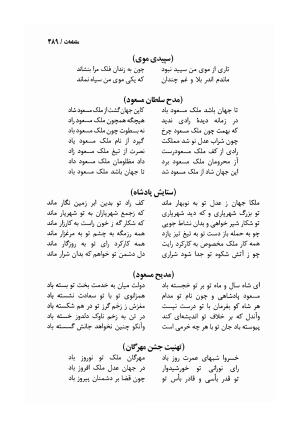 مقطعات / ۴۸۹
(سپیدی موی)
تاری از موی من سپید نبود چون به زندان فلک مرا بنشاند
ماندم اندر بلا و غم چندان که یکی موی من سیاه نماند
(مدح سلطان مسعود)
تا جهان باشد ملک مسعود باد کاین جهان گشت از ملک مسعود شاد
در زمانه دیدهٔ رادی ندید هیچگه همچون ملک مسعود راد
که بهمت چون ملک مسعود چرخ نه بسطوت چون ملک مسعود باد
چون شراب عدل نو شد مملکت گیرد از نام ملک مسعود یاد
از کف راد ملک مسعودرست نصرت از تیغ ملک مسعود زاد
از محرومان ملک مسعود برد داد مظلومان ملک مسعود داد
این جهان شاد از ملک مسعود شد تا جهان باشد ملک مسعود باد
(ستایش پادشاه)
ملکا جهان ز عدل تو به نوبهار ماند کف راد تو بدین ابر زمین نگار ماند
تو بزرگ شهریاری و که دید شهریاری که رجمع شهریاران به تو شهریار ماند
تو شکار شیر خواهی و بدان نشاط جویی که شکار گه ز خون راست به کارزار ماند
چو به حمله باد دست تو به تیغ تیز یازد همه رزمگه به چشم تو به مرغزار ماند
همه کار ملک مخصوص به کارکرد رایت همه کارکرد رای تو به روزگار ماند
چو ز آتش شکوه تو جدا شود شراری دل دشمن تو خواهم که بدان شرار ماند
(مدیح مسعود)
ای شاه سال و ماه تو بر تو خجسته باد دولت میان به خدمت بخت تو بسته باد
مسعود پادشاهی و چون نام تو مدام همزانوی تو با تو سعادت نشسته باد
هر شاه کو بفرمان با تو درست نیست مغزش ز زخم گرز تو در هم شکسته باد
وآندل که بر خلاف تو اندیشه‌ای کند در تن به زخم ناوک دلدوز خسته باد
پیوسته باد جان تو با هر چه خرمی است وآنکو چنین نخواهد جانش گسسته باد
(تهنیت جشن مهرگان)
خسروا شبهای عمرت روز باد مهرگان ملک تو نوروز باد
رای نورانی تو خورشیدوار در جهان عدل ملک افروز باد
تو قدر بأسی و قادر بأس تو چون قضا بر دشمنان پیروز باد